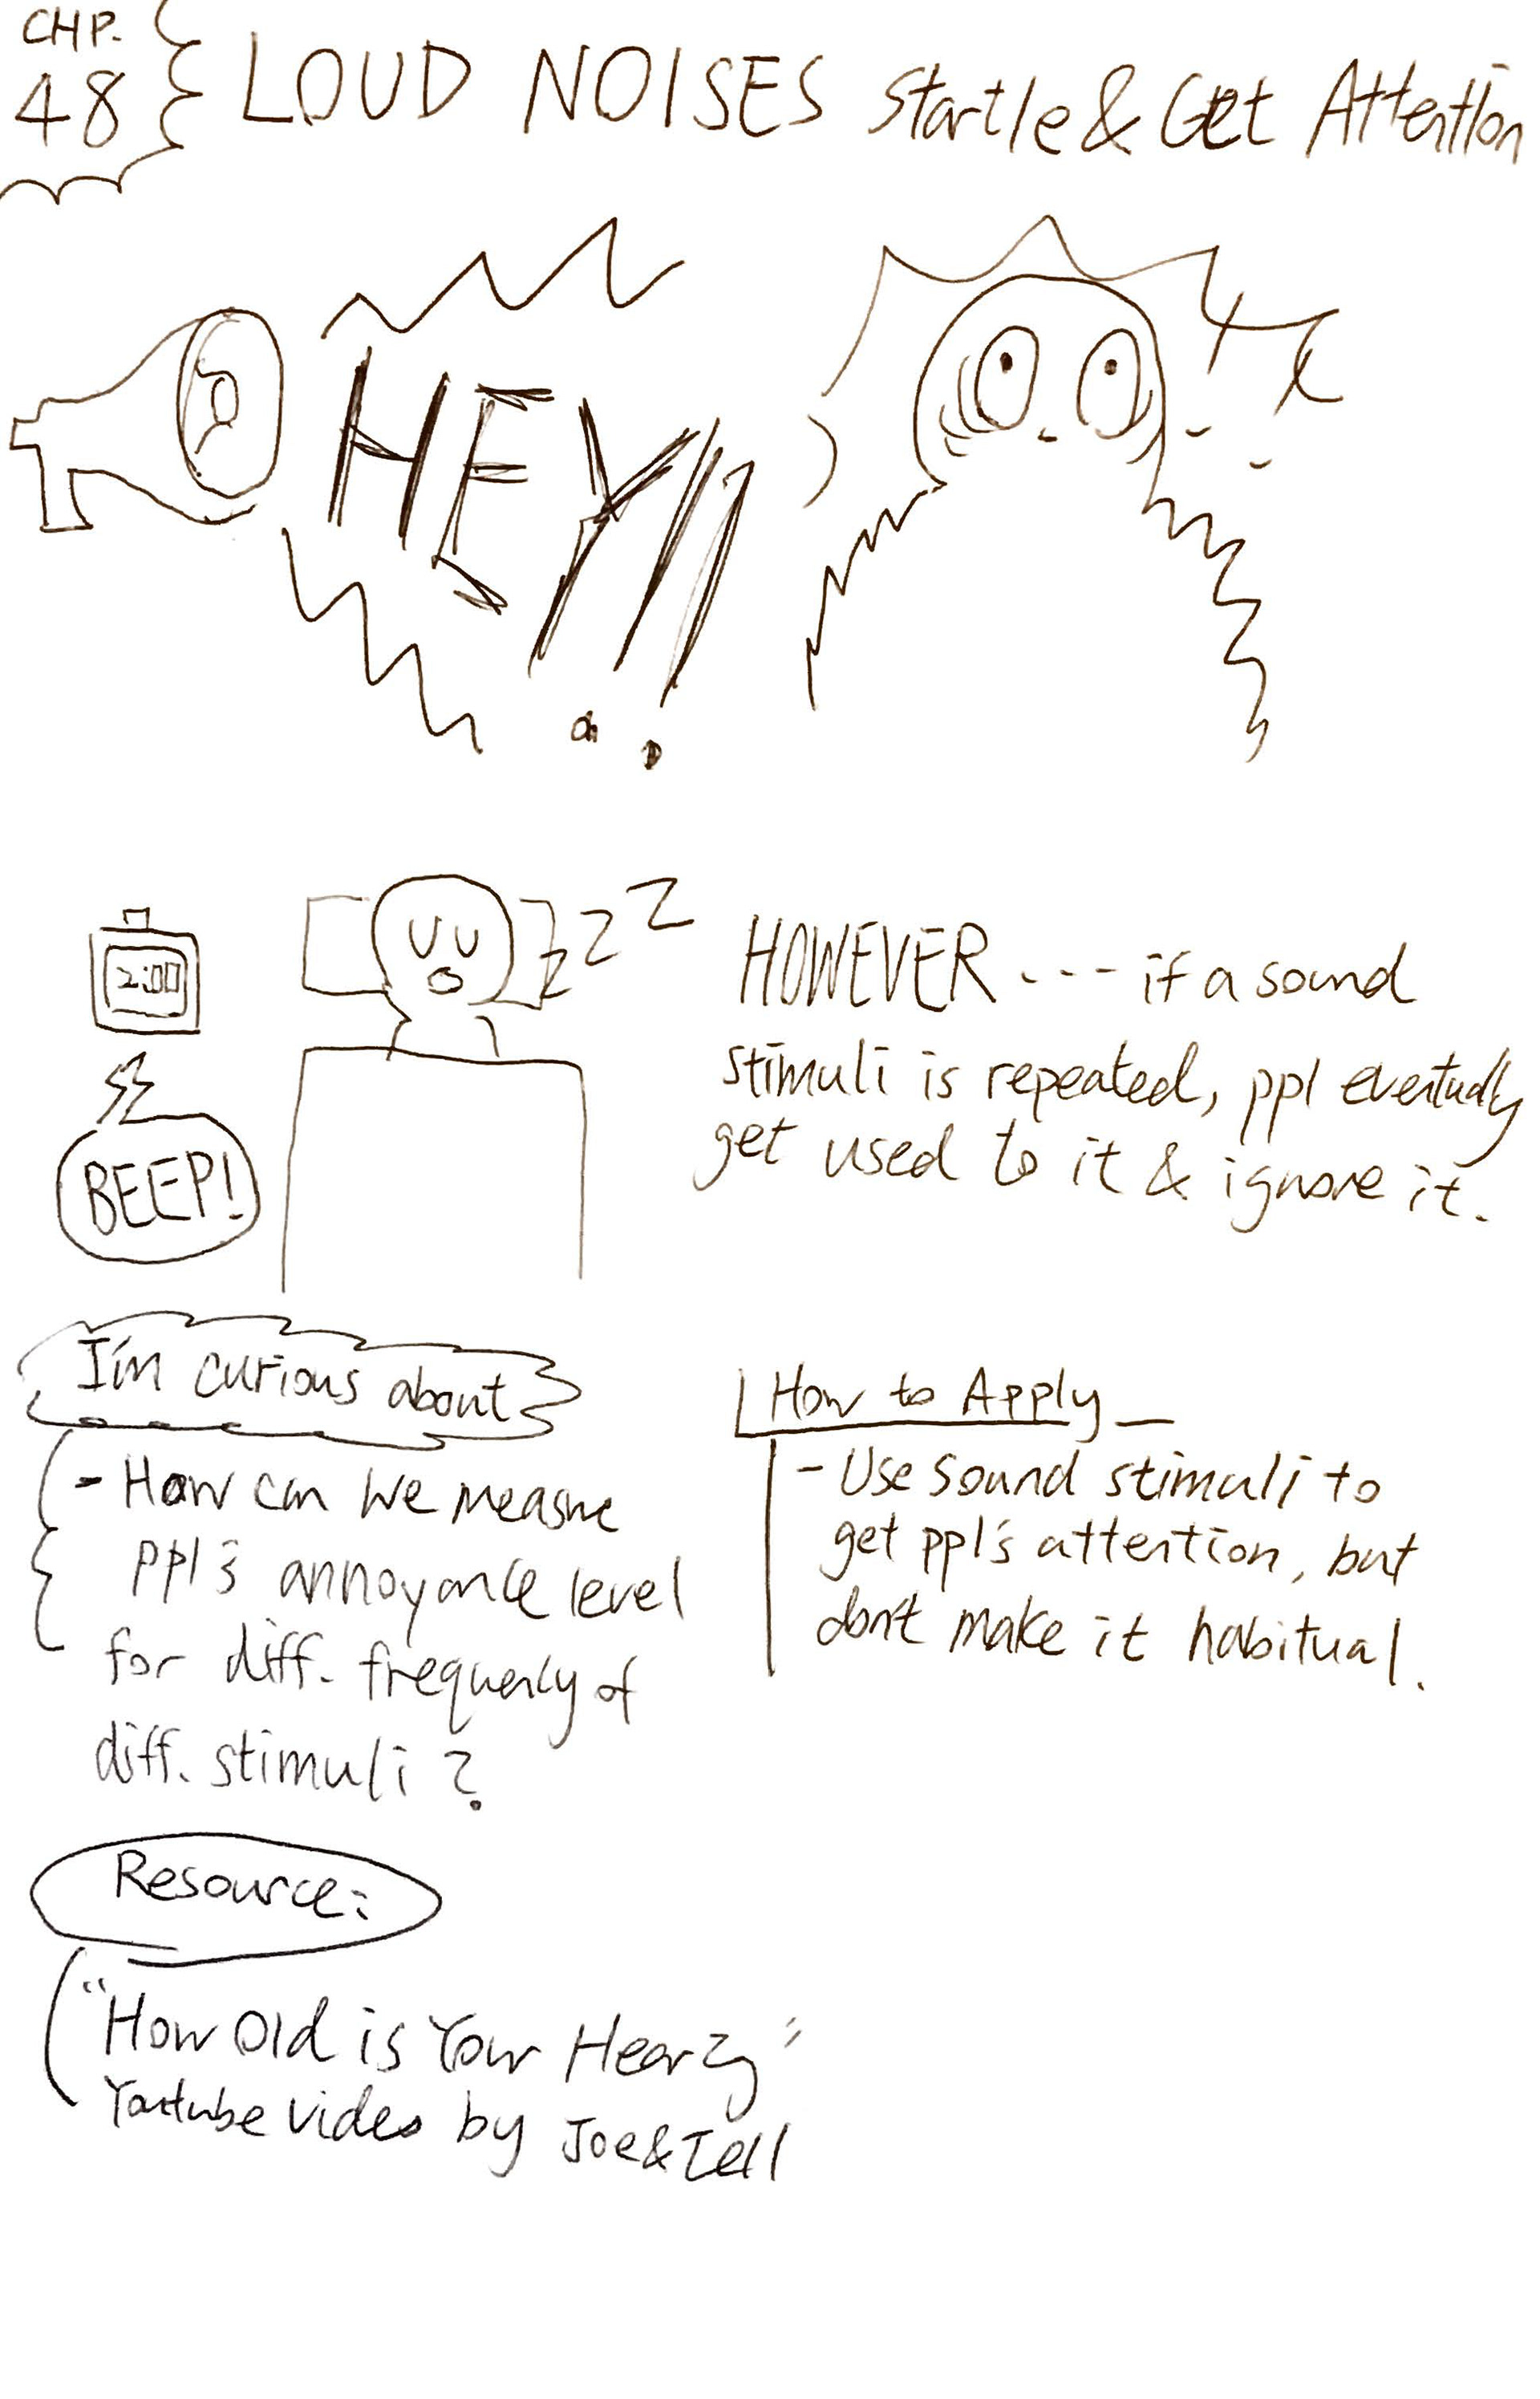 CHP.
48
LOUD NOISES Startle & Get Attention
HEY!!
2:00
BEEP!
zzz
HOWEVER ---- if a sound
stimuli is repeated, ppl eventually
get used to it & ignore it.
I'm curious about
- How can we measure
ppl's annoyance level
for diff. frequency of
diff. stimuli?
How to Apply
- Use sound stimuli to
get ppl's attention, but
don't make it habitual.
Resource:
"How Old is Your Hearing"
Youtube video by Joe&